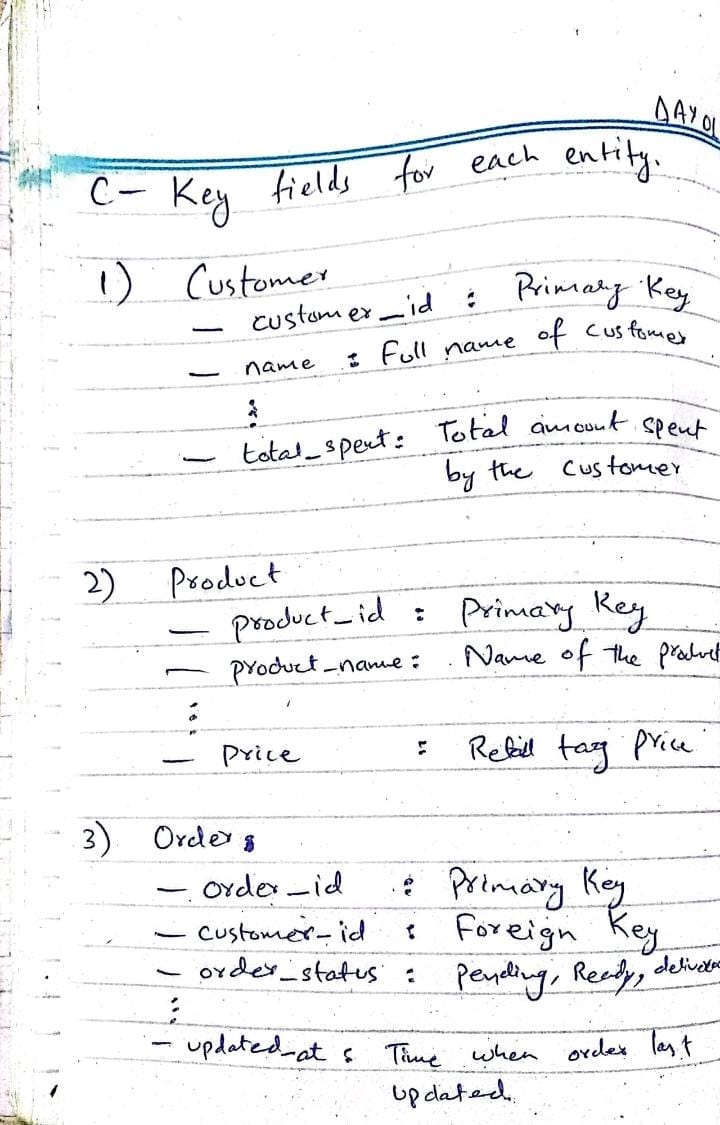 DAY 01
C- Key fields for each entity.
1) Customer
— customer_id : Primary Key
— name : Full name of customer
⋮
— total_spent : Total amount spent
by the customer
2) Product
— product_id : Primary Key
— product_name : Name of the product
⋮
— Price : Retail tag price
3) Order :
— order_id : Primary Key
— customer_id : Foreign Key
— order_status : Pending, Ready, delivered
⋮
— updated_at : Time when order last
updated.